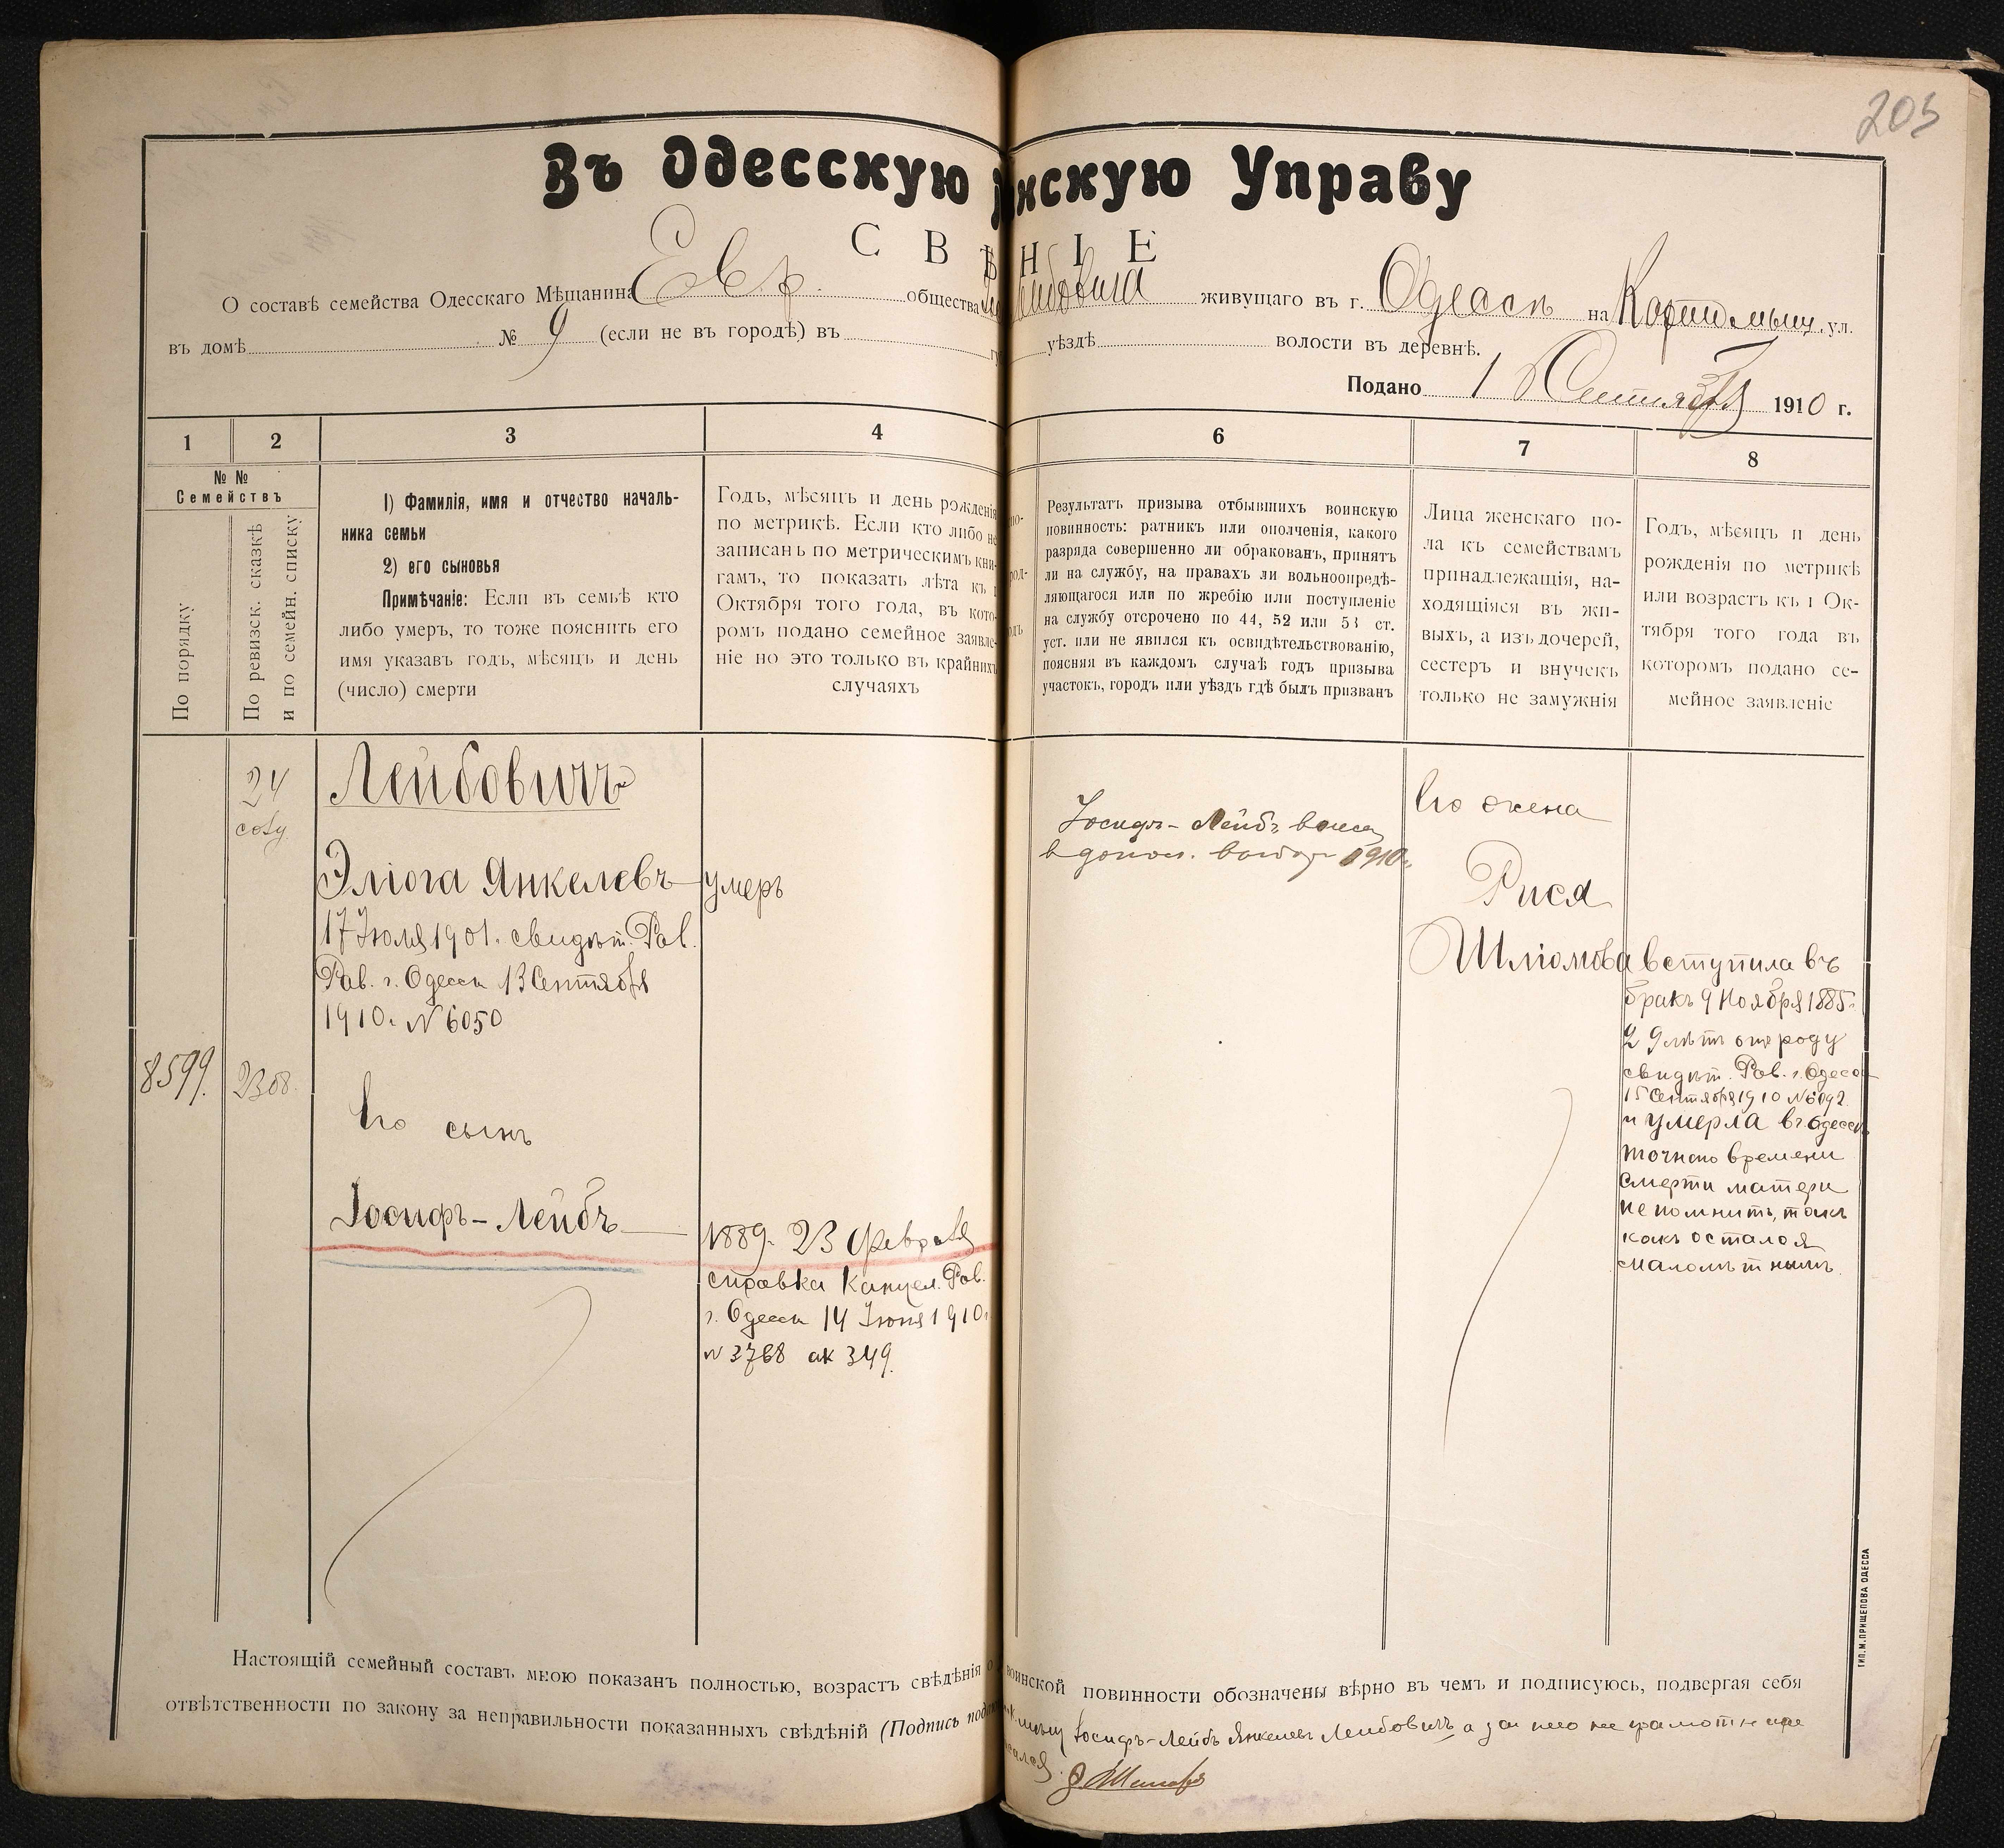 205
Въ Одесскую нскую Управу
С В Ѣ Н І Е
О составѣ семейства Одесскаго Мѣщанина Евр. общества Лейбовича живущаго въ г. Одессѣ на ул.
въ домѣ № 9 (если не въ городѣ) въ уѣздѣ волости въ деревнѣ.
Подано 1 Сентября 1910 г.
1 2 3 4 6 7 8
№ №
Семействъ
По порядку
По ревизск. сказкѣ
и по семейн. списку
1) Фамилія, имя и отчество началь-
ника семьи
2) его сыновья
Примѣчаніе: Если въ семьѣ кто
либо умеръ, то тоже пояснить его
имя указавъ годъ, мѣсяцъ и день
(число) смерти
Годъ, мѣсяцъ и день рожденія
по метрикѣ. Если кто либо не
записанъ по метрическимъ кни-
гамъ, то показать лѣта къ 1
Октября того года, въ кото-
ромъ подано семейное заявле-
ніе но это только въ крайнихъ
случаяхъ
Результатъ призыва отбывшихъ воинскую
повинность: ратникъ или ополченія, какого
разряда совершенно ли обракованъ, принятъ
ли на службу, на правахъ ли вольноопредѣ-
ляющагося или по жребію или поступленіе
на службу отсрочено по 44, 52 или 53 ст.
уст. или не явился къ освидѣтельствованію,
поясняя въ каждомъ случаѣ годъ призыва
участокъ, городъ или уѣздъ гдѣ былъ призванъ
Лица женскаго по-
ла къ семействамъ
принадлежащія, на-
ходящіяся въ жи-
выхъ, а изъ дочерей,
сестеръ и внучекъ
только не замужнія
Годъ, мѣсяцъ и день
рожденія по метрикѣ
или возрастъ къ 1 Ок-
тября того года въ
которомъ подано се-
мейное заявленіе
24
8599.
Лейбовичъ
Эліога Янкелевъ — умеръ
17 Іюля 1901 г. свидѣт. Рав.
Рав. г. Одессы 13 Сентября
1910 г. № 6050
Его сынъ
Іосифъ-Лейбъ —
1889 г. 23 Февраля
справка Канцел. Рав.
г. Одессы 14 Іюня 1910 г.
№ 3768 ак 349.
Іосифъ-Лейбъ
1910 г.
Его жена
Рися
Шліомова
вступила въ
бракъ 9 Ноября 1885 г.
29 лѣтъ роду
свидѣт. Рав. г. Одессы
15 Сентября 1910 № 6092
и умерла въ Одессѣ
точнаго времени
смерти матери
не помнитъ, такъ
какъ остался
малолѣтнымъ.
Настоящій семейный составъ мною показанъ полностью, возрастъ свѣдѣнія о воинской повинности обозначены вѣрно въ чемъ и подписуюсь, подвергая себя
отвѣтственности по закону за неправильности показанныхъ свѣдѣній (Подпись Іосифъ-Лейбъ Янкелевъ Лейбовичъ а за него неграмотнаго
ТИП. М. ПРИЩЕПОВА ОДЕССА